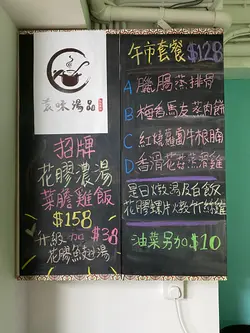 煮味湯品
招牌
花膠濃湯
菜膽雞飯
$158
升級加$38
花膠魚翅湯
午市套餐 $128
A 臘腸蒸排骨
B 梅香馬友蒸肉餅
C 紅燒蘿蔔牛根腩
D 香滑花菇蒸滑雞
是日燉湯及白飯
花膠螺片燉竹絲雞
油菜另加$10